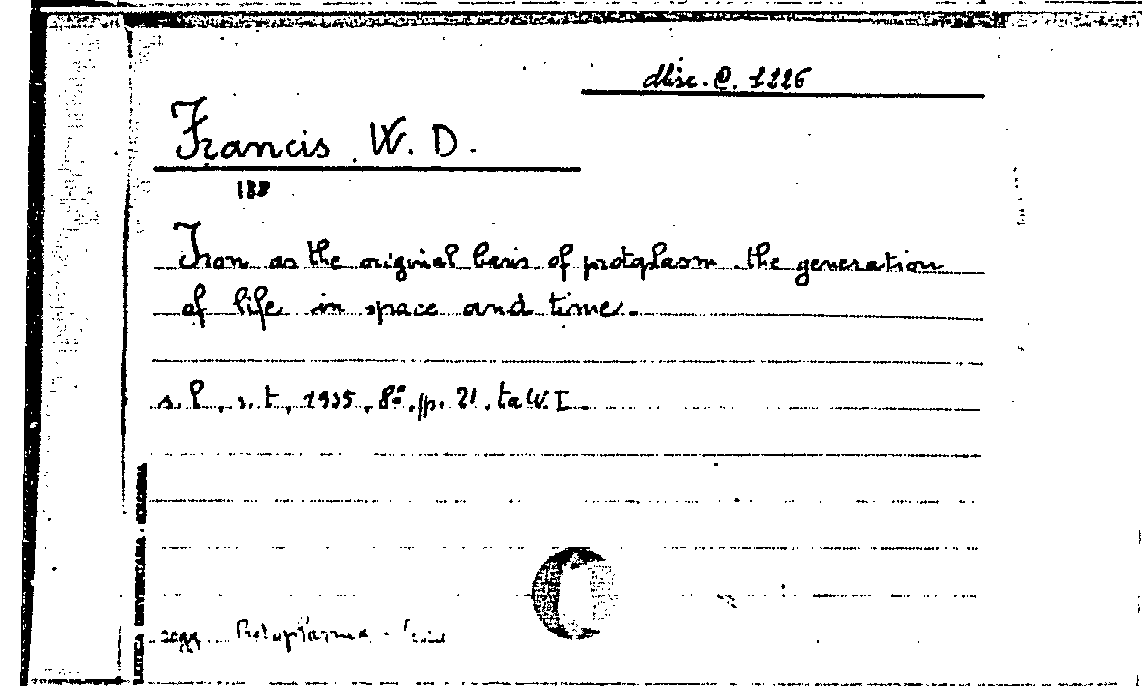 Misc. C. 1226
Francis W. D.
188
Iron as the original basis of protoplasm the generation
of life in space and time.
s. l., s. t., 1935, 8°, p. 21. ta W. I
BIBLIOTECA UNIVERSITARIA - BOLOGNA
sogg. Protoplasma -